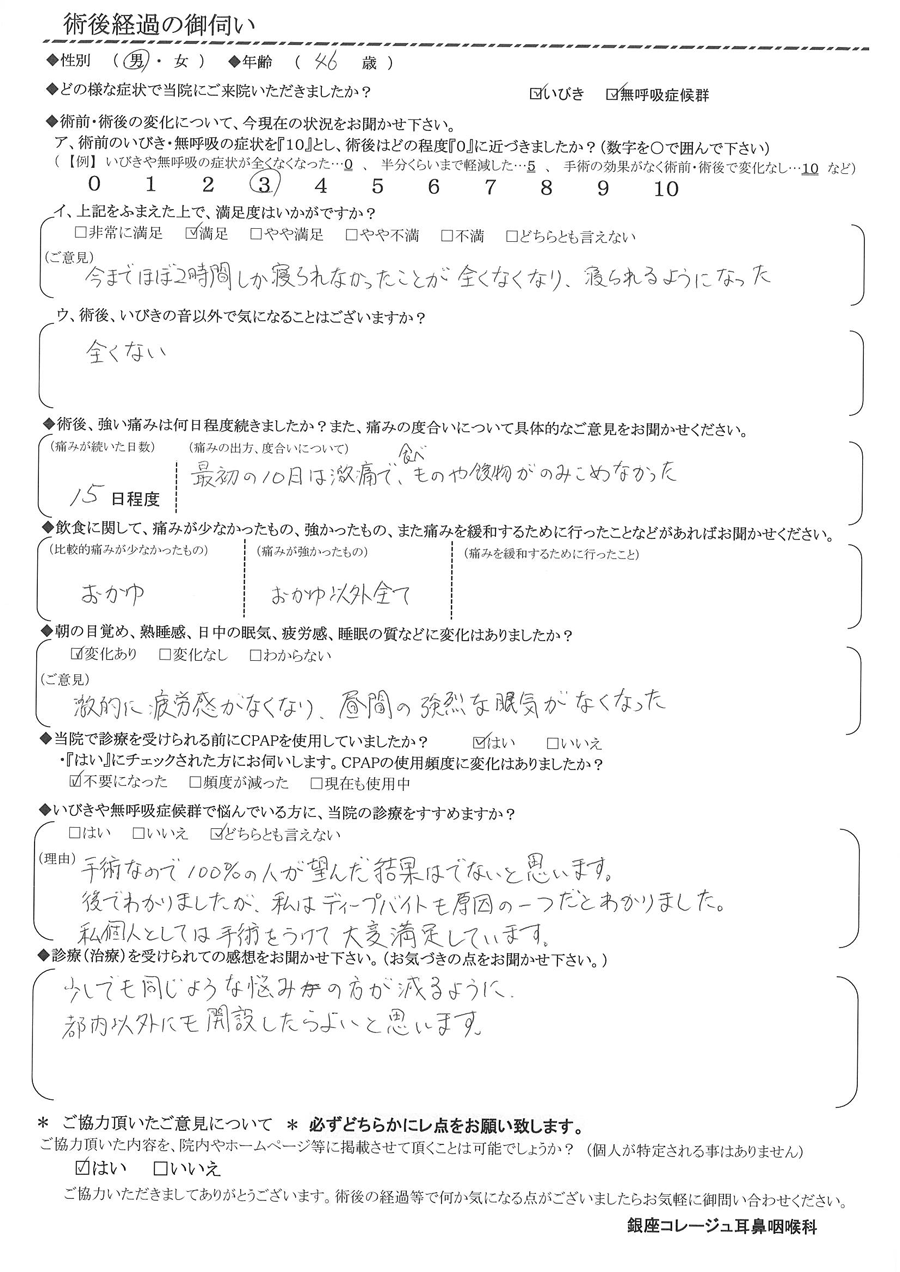 術後経過の御伺い
◆性別 （ 男 ・ 女 ） ◆年齢 （ 46 歳 ）
◆どの様な症状で当院にご来院いただきましたか？ ☑いびき ☑無呼吸症候群
◆術前・術後の変化について、今現在の状況をお聞かせ下さい。
ア、術前のいびき・無呼吸の症状を『10』とし、術後はどの程度『0』に近づきましたか？（数字を○で囲んで下さい）
（ 【例】 いびきや無呼吸の症状が全くなくなった…0 、 半分くらいまで軽減した…5 、 手術の効果がなく術前・術後で変化なし…10 など）
0 1 2 3 4 5 6 7 8 9 10
イ、上記をふまえた上で、満足度はいかがですか？
□非常に満足 ☑満足 □やや満足 □やや不満 □不満 □どちらとも言えない
（ご意見）
今までほぼ2時間しか寝られなかったことが 全くなくなり、寝られるようになった
ウ、術後、いびきの音以外で気になることはございますか？
全くない
◆術後、強い痛みは何日程度続きましたか？また、痛みの度合いについて具体的なご意見をお聞かせください。
（痛みが続いた日数） （痛みの出方、度合いについて）
15 日程度 最初の10日は激痛で、食べものや飲物がのみこめなかった
◆飲食に関して、痛みが少なかったもの、強かったもの、また痛みを緩和するために行ったことなどがあればお聞かせください。
（比較的痛みが少なかったもの） （痛みが強かったもの） （痛みを緩和するために行ったこと）
おかゆ おかゆ以外全て
◆朝の目覚め、熟睡感、日中の眠気、疲労感、睡眠の質などに変化はありましたか？
☑変化あり □変化なし □わからない
（ご意見）
激的に疲労感がなくなり、昼間の強烈な眠気がなくなった
◆当院で診療を受けられる前にCPAPを使用していましたか？ ☑はい □いいえ
・『はい』にチェックされた方にお伺いします。CPAPの使用頻度に変化はありましたか？
☑不要になった □頻度が減った □現在も使用中
◆いびきや無呼吸症候群で悩んでいる方に、当院の診療をすすめますか？
□はい □いいえ ☑どちらとも言えない
（理由） 手術なので100%の人が望んだ結果はでないと思います。
後でわかりましたが、私はディープバイトも原因の一つだとわかりました。
私個人としては手術をうけて大変満足しています。
◆診療（治療）を受けられての感想をお聞かせ下さい。（お気づきの点をお聞かせ下さい。）
少しでも同じような悩みの方が減るように、
都内以外にも開設したらよいと思います。
＊ ご協力頂いたご意見について ＊ 必ずどちらかにレ点をお願い致します。
ご協力頂いた内容を、院内やホームページ等に掲載させて頂くことは可能でしょうか？（個人が特定される事はありません）
☑はい □いいえ
ご協力いただきましてありがとうございます。術後の経過等で何か気になる点がございましたらお気軽に御問い合わせください。
銀座コレージュ耳鼻咽喉科